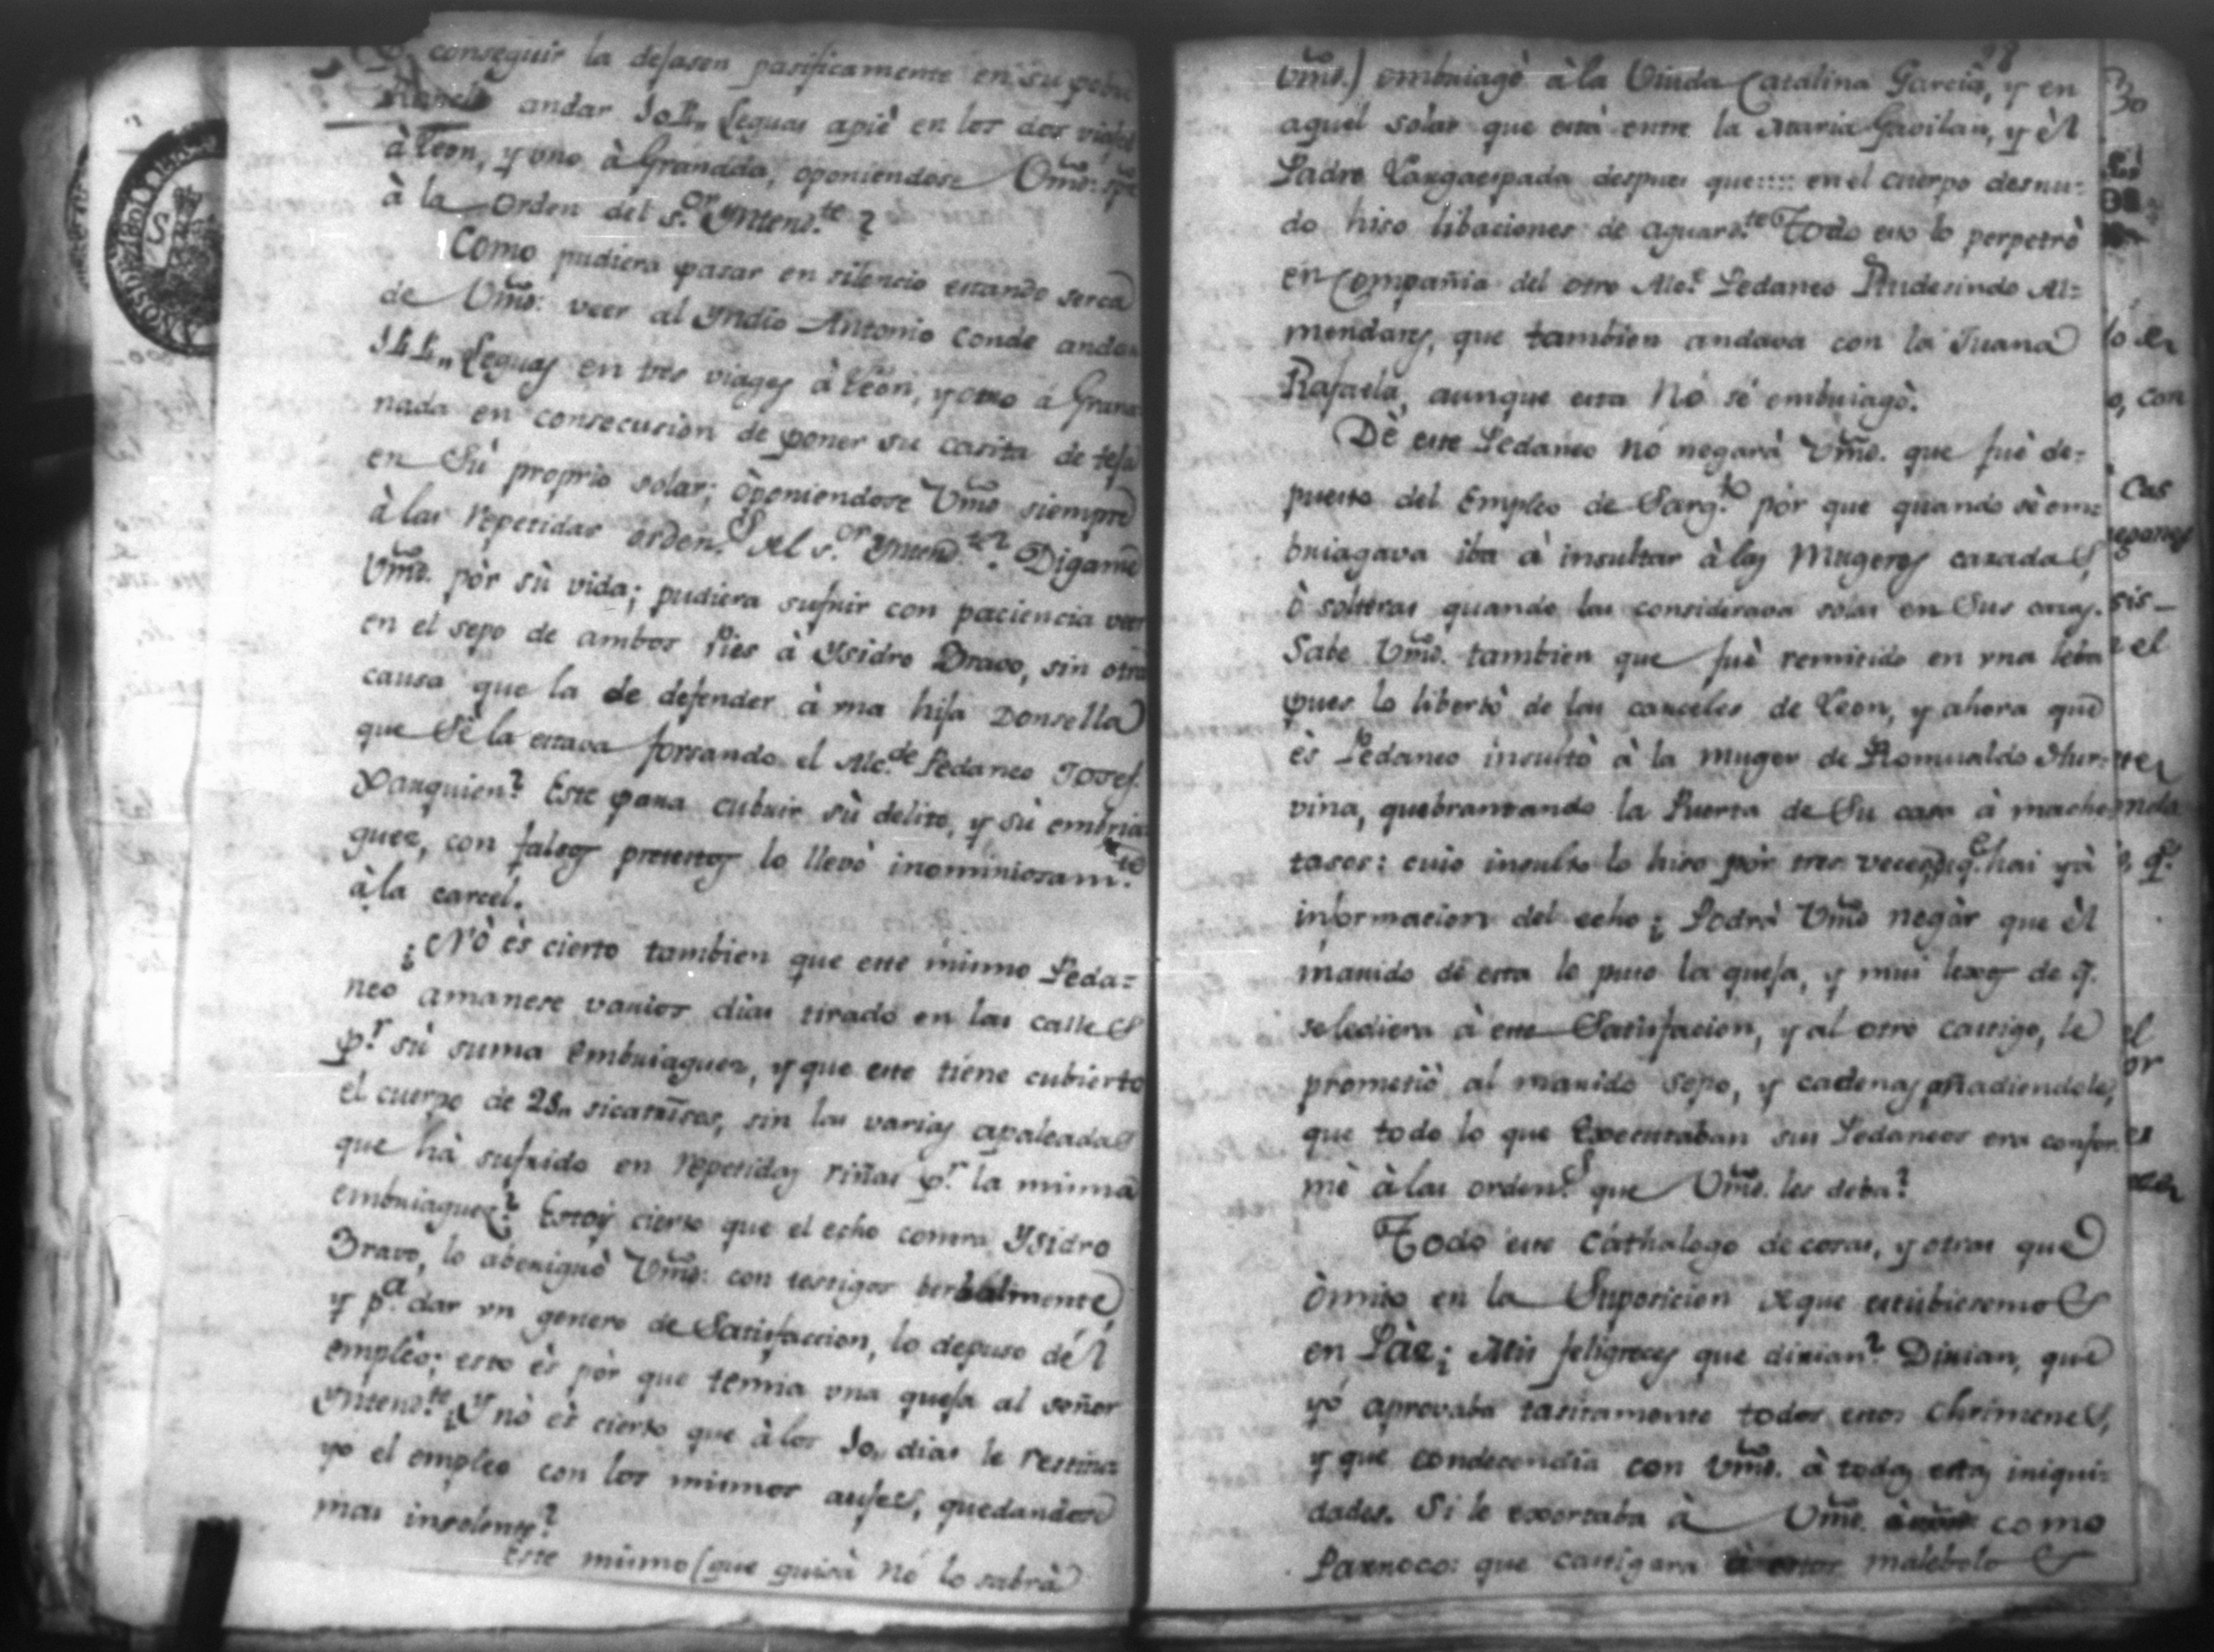 conseguir la dejasen pasificamente en su pobre
andar Leguas apiè en los dos viajes
à Leon, y uno à Granada, oponiendose Vmd. spre
à la orden del s.or Yntend.te ?
Como pudiera pasar en silencio estando serca
de Vmd: veer al Yndio Antonio Conde andar
Leguas en tres viages à Leon, y otro à Grana
nada en consecusion de poner su casita de teja
en Sù proprio solar; òponiendose Vmd siempre
à las repetidas orden.s del s.or Yntend.te? Digame
Vmd. pòr sù vida; pudiera sufrir con paciencia veer
en el sepo de ambos Pies à Ysidro Bravo, sin otra
causa que la de defender à una hija Donsella
que Sè la estava forsando el Alc.de Pedaneo Josef
Parquien? Este para cubrir sù delito, y sù embria
guez, con falsos pretextos lo llevò inominiosam.te
à la carcel.
¿Nò ès cierto tambien que este mismo Peda=
neo amanese varios dias tirado en las calles
p.r sù suma embriaguez, y que este tiene cubierto
el cuerpo de 28,, sicatrises, sin las varias apaleadas
que hà sufrido en repetidas riñas p.r la misma
embriaguez? Estoy cierto que el echo contra Ysidro
Bravo, lo aberiguò Vmd: con testigos berbalmente,
y p.a dar un genero de Satisfaccion, lo depuso dél
empleo; esto ès pòr que temia una queja al señor
Yntend.te ¿Y nò ès cierto que à los 10,, dias le restitu
yo el empleo con los mismos aujes, quedandose
mas insolente?
Este mismo (que quisà nó lo sabrà
Vmd.) embriagò à la Viuda Catalina Garcia, y en
aquel solar que està entre la Maria Gavilan, y èl
Padre Largaespada despues que:::: en el cuerpo desnu=
do hiso libaciones de aguard.te Todo esto lo perpetrò
en Compañia del otro Alc.e Pedaneo Rudesindo Al=
mendares, que tambien andava con la Juana
Rafaela, aunque esta Nó sè embriagò.
Dè este Pedaneo nó negarà Vmd. que fuè de=
puesto del Empleo de Sarg.to pòr que quando sè em=
briagava iba à insultar à las Mugeres casadas,
ò solteras quando las considerava solas en Sus casas.
Sabe Vmd. tambien que fuè remitido en una leba
pues lo libertò de las carceles de Leon, y ahora que
ès Pedaneo insultò à la muger de Romualdo Ytur=
vina, quebrantando la Puerta de Su casa à mache
tasos: cuio insulto lo hiso pòr tres veces, deq.e hai yà
informacion del echo ¿ Podrà Vmd negàr que èl
marido de esta le puso la queja, y mui lexos de q.
selediera à este Satisfacion, y al otro castigo, le
prometiò al marido sepo, y cadenas añadiendole,
que todo lo que Executaban sus Pedaneos era confor
mè à las orden.s que Vmd. les daba?
Todo este cáthalogo de cosas, y otras que
òmito en la Suposicion deque estubiesemos
en Pàz; Mis feligreces que dirian? Dirian, que
yó aprovaba tasitamente todos estos chrimenes,
y que condecendia con Vmd. à todas estas iniqui=
dades. Si le exortaba à Vmd. como
Parroco: que castigara malebolos